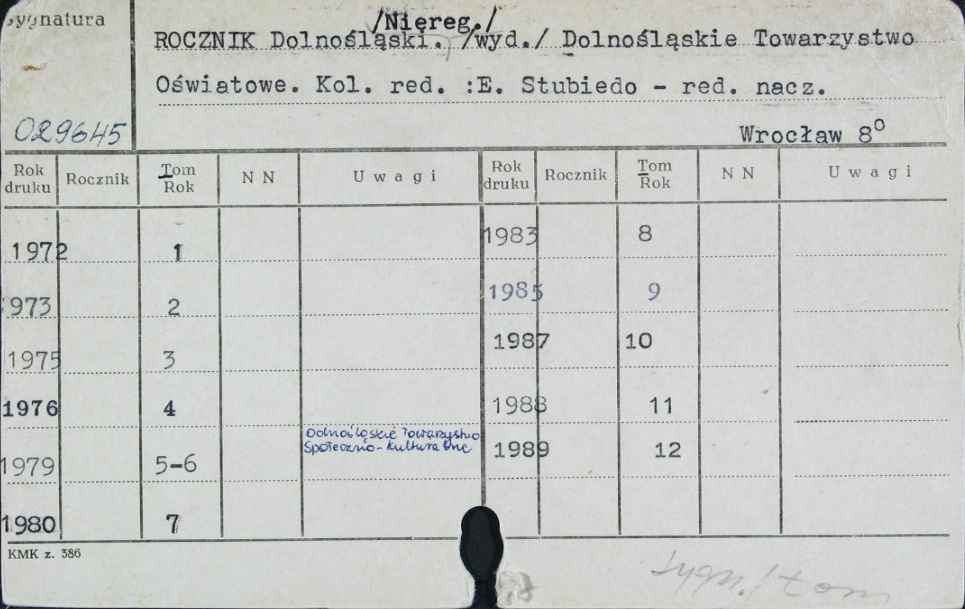 Sygnatura
/Niereg./
ROCZNIK Dolnośląski. /wyd./ Dolnośląskie Towarzystwo
Oświatowe. Kol. red. :E. Stubiedo – red. nacz.
029645
Wrocław 8°
Rok druku Rocznik Tom Rok N N Uwagi Rok druku Rocznik Tom Rok N N Uwagi
1972 1 1983 8
1973 2 1985 9
1975 3 1987 10
1976 4 1988 11
Dolnośląskie Towarzystwo
Społeczno-Kulturalne
1979 5-6 1989 12
1980 7
KMK z. 386